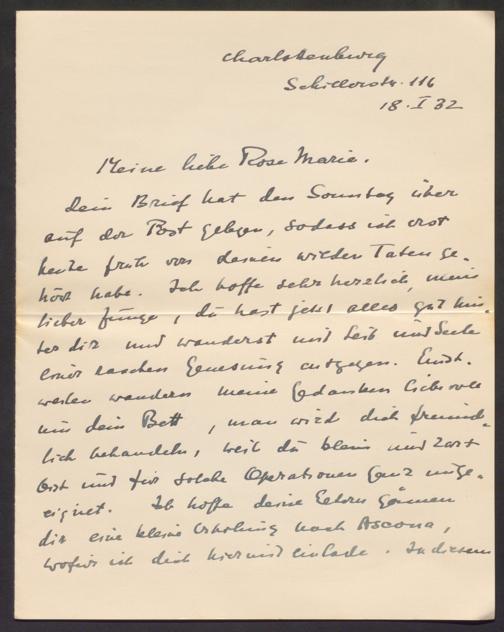 Charlottenburg
Schillerstr. 116
18. I 32
Meine liebe Rose Marie.
Dein Brief hat den Sonntag über
auf der Post gelegen, sodass ich erst
heute früh von deinen wilden Taten ge-
hört habe. Ich hoffe sehr herzlich, mein
lieber Junge, du hast jetzt alles gut hin-
ter dir und wanderst mit Leib und Seele
einer raschen Genesung entgegen. Einst-
weilen wandern meine Gedanken liebevoll
um dein Bett, man wird dich freund-
lich behandeln, weil du klein und zart
bist und für solche Operationen ganz unge-
eignet. Ich hoffe deine Eltern gönnen
dir eine kleine Erholung nach Ascona,
wofür ich dich hiermit einlade. In diesem